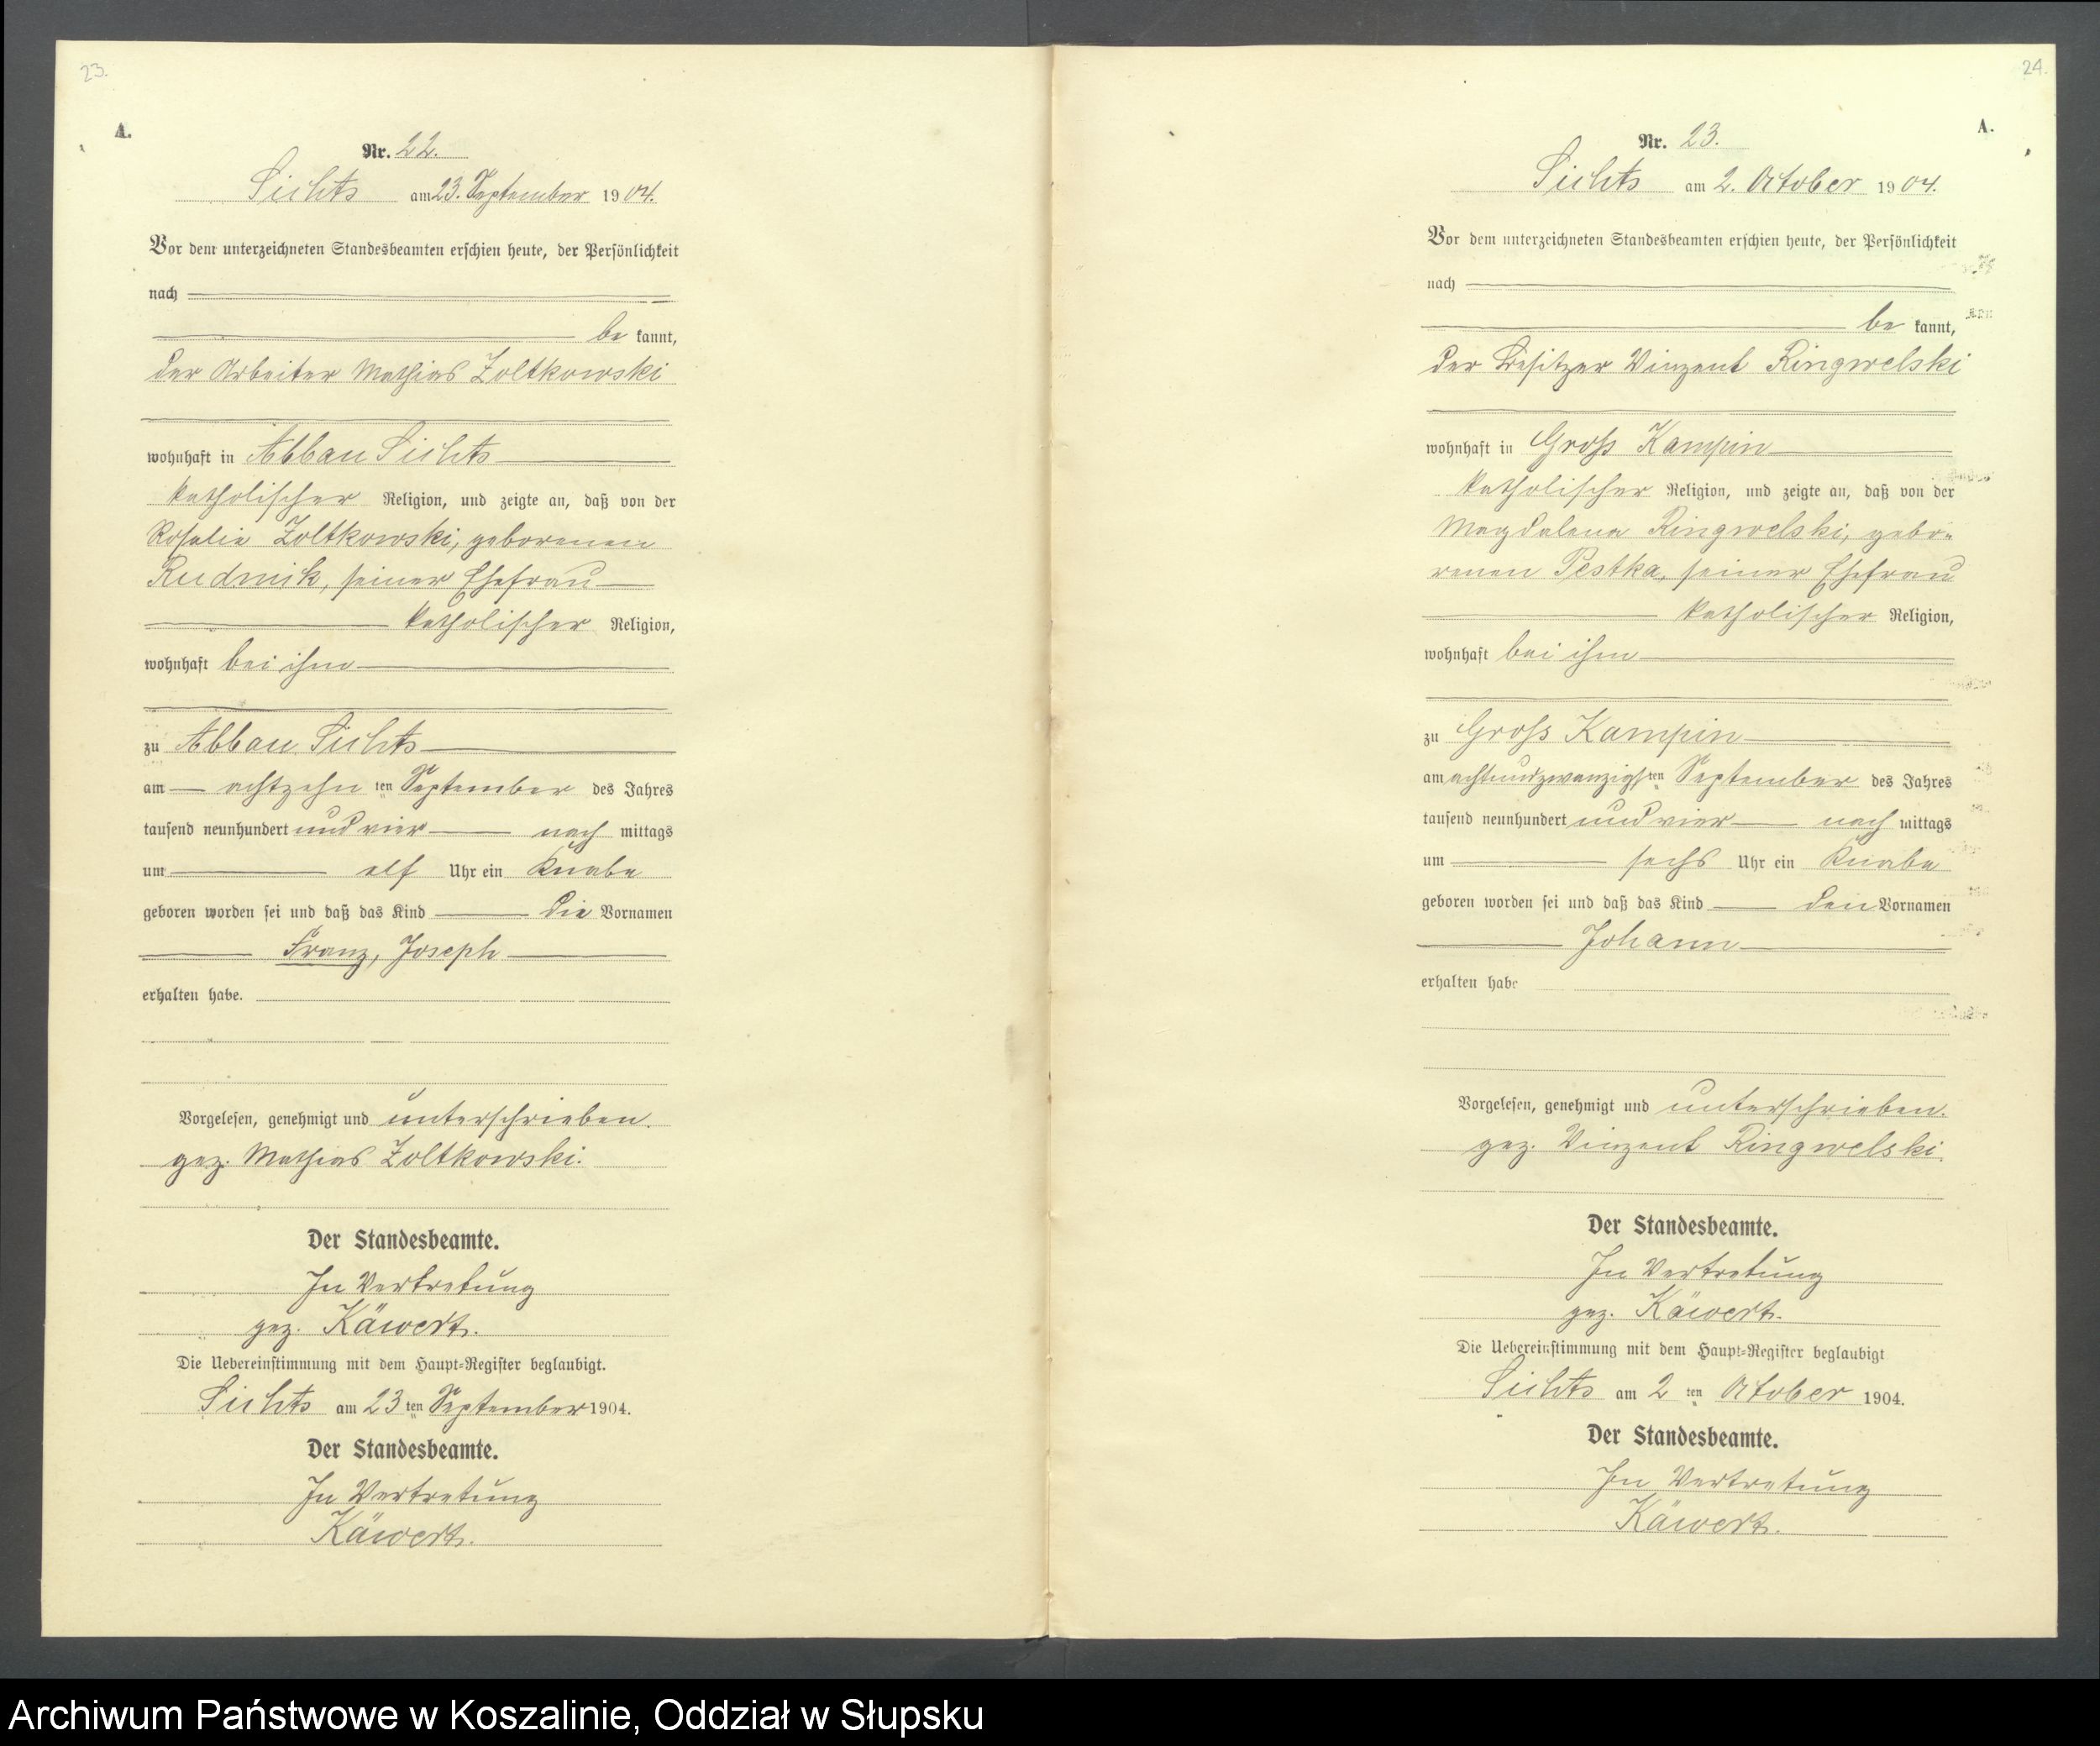 23.
A.
Nr. 22.
Lichts am 23. September 1904.
Vor dem unterzeichneten Standesbeamten erschien heute, der Persönlichkeit
nach
be kannt,
der Arbeiter Mathias Zoltkowski
wohnhaft in Abbau Lichts
katholischer Religion, und zeigte an, daß von der
Rosalie Zoltkowski, geborenen
Rudnik, seiner Ehefrau
katholischer Religion,
wohnhaft bei ihm
zu Abbau Lichts
am achtzehn ten September des Jahres
tausend neunhundert und vier nach mittags
um elf Uhr ein Knabe
geboren worden sei und daß das Kind die Vornamen
Franz, Joseph
erhalten habe.
Vorgelesen, genehmigt und unterschrieben.
gez. Mathias Zoltkowski.
Der Standesbeamte.
In Vertretung
gez. Käwert.
Die Uebereinstimmung mit dem Haupt-Register beglaubigt.
Lichts am 23 ten September 1904.
Der Standesbeamte.
In Vertretung
Käwert.
24.
A.
Nr. 23.
Lichts am 2. October 1904.
Vor dem unterzeichneten Standesbeamten erschien heute, der Persönlichkeit
nach
be kannt,
der Besitzer Vinzent Ringwelski
wohnhaft in Gross Kampin
katholischer Religion, und zeigte an, daß von der
Magdalena Ringwelski, gebo-
renen Pestka, seiner Ehefrau
katholischer Religion,
wohnhaft bei ihm
zu Gross Kampin
am achtundzwanzigsten September des Jahres
tausend neunhundert und vier nach mittags
um sechs Uhr ein Knabe
geboren worden sei und daß das Kind den Vornamen
Johann
erhalten habe
Vorgelesen, genehmigt und unterschrieben.
gez. Vinzent Ringwelski.
Der Standesbeamte.
In Vertretung
gez. Käwert.
Die Uebereinstimmung mit dem Haupt-Register beglaubigt
Lichts am 2 ten October 1904.
Der Standesbeamte.
In Vertretung
Käwert.
Archiwum Państwowe w Koszalinie, Oddział w Słupsku